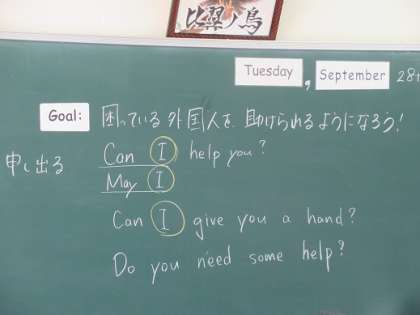 比翼ノ鳥
Tuesday, September 28
Goal: 困っている外国人を助けられるようになろう!
申し出る
Can I help you?
May I
Can I give you a hand?
Do you need some help?